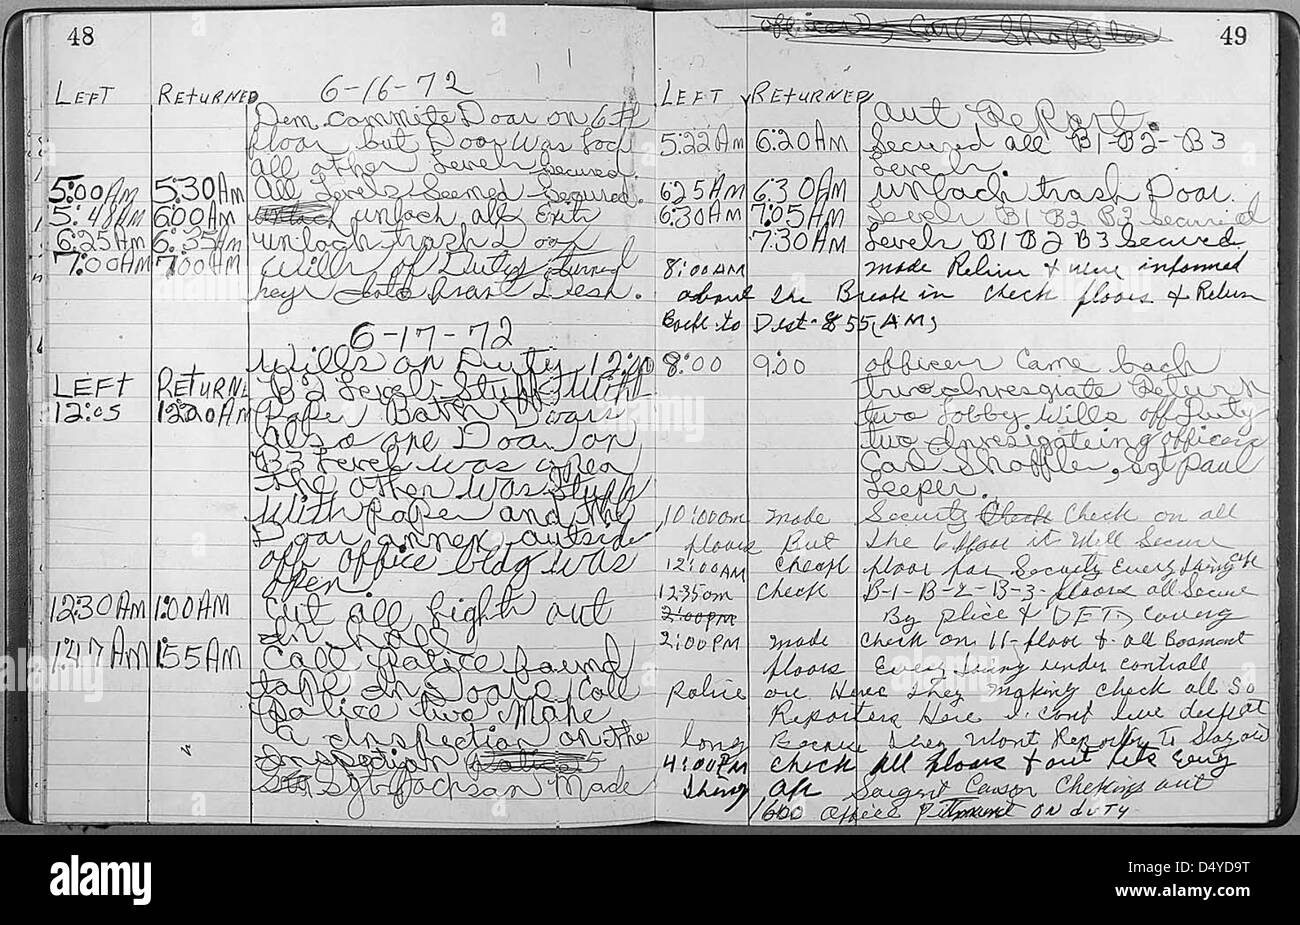 48
6-16-72
LEFT RETURNED
Dem. Committe Door on 6th
floor but Door was Loch
all other Levels Secured.
5:00AM 5:30AM all Levels Seemed Secured.
5:48AM 600AM unloch all Exits
6:25AM 6:35AM unloch trash Door
7:00AM 7:00AM Wills of Duty turned
keys
6-17-72
Wills on Duty 12:00
LEFT RETURNE B2 Level Stuff With
12:05 1200AM Paper Both Doors
also one Door on
B3 Level was open
the other was Stuff
With Paper and the
Door annex outside
off office bldg was
open
12:30AM 1:00AM Cut all Light out
in hall
1:47AM 155AM Call Police found
tape on Doors, Call
Police two Make
a Inspection on the
Inspection
Sgt Jackson Made
officers, Carl Shoffler
49
LEFT RETURNED
out Report.
5:22AM 6:20AM Secured all B1-B2-B3
Levels.
625AM 6:30AM unloch trash Door.
6:30AM 7:05AM Levels B1 B2 B3 Secured
7:30AM Levels B1 B2 B3 Secured
8:00AM made Relive & were informed
about the Break in check floors & Return
Back to Dest. 855 (AM)
8:00 9:00 officer came back
two Invesgiate Return
two Lobby Wills off Duty
two Invesigateing officers
Carl Shoffler, Sgt Paul
Leeper.
10:00am made Security Check Check on all
floors But the 6 floor it Well Secure
12:00AM cheak floor for Security Every thing ok
1235am check B-1-B-2-B-3- floors all Secure
2:00pm By plice & DET, Covery
2:00PM made check on 11-floor & all Basmont
floors Every thing under controll
Police are Here they making check all So
Reporters Here I cont leve desk at
long Because they Wont Reporters To Stay out
4:00PM check all floors & out lets Every
thing ok Sargent Cawson Cheking out
1600 Office Pitmant ON duTY
alamy
Image ID: D4YD9T
www.alamy.com